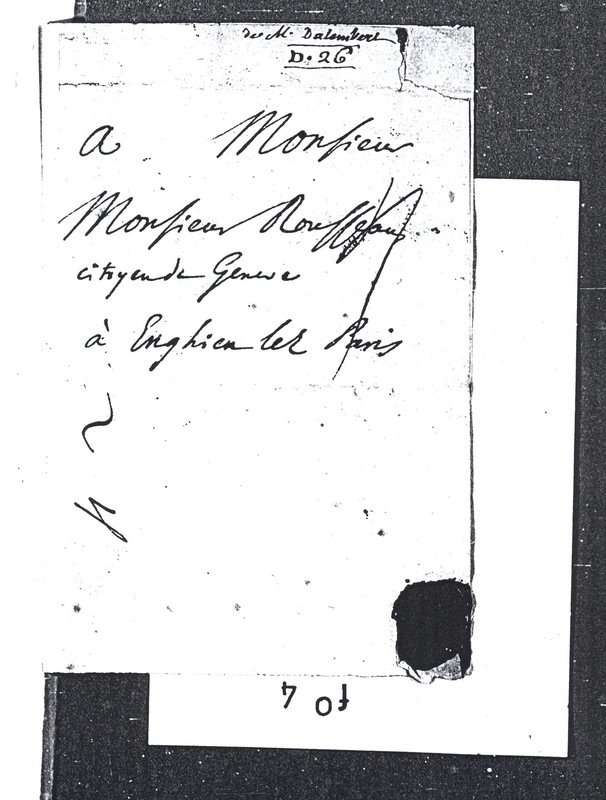 de M. Dalembert
D. 26
a Monsieur
Monsieur Rousseau
citoyen de Geneve
à Enghien lez Paris
4
f0 4